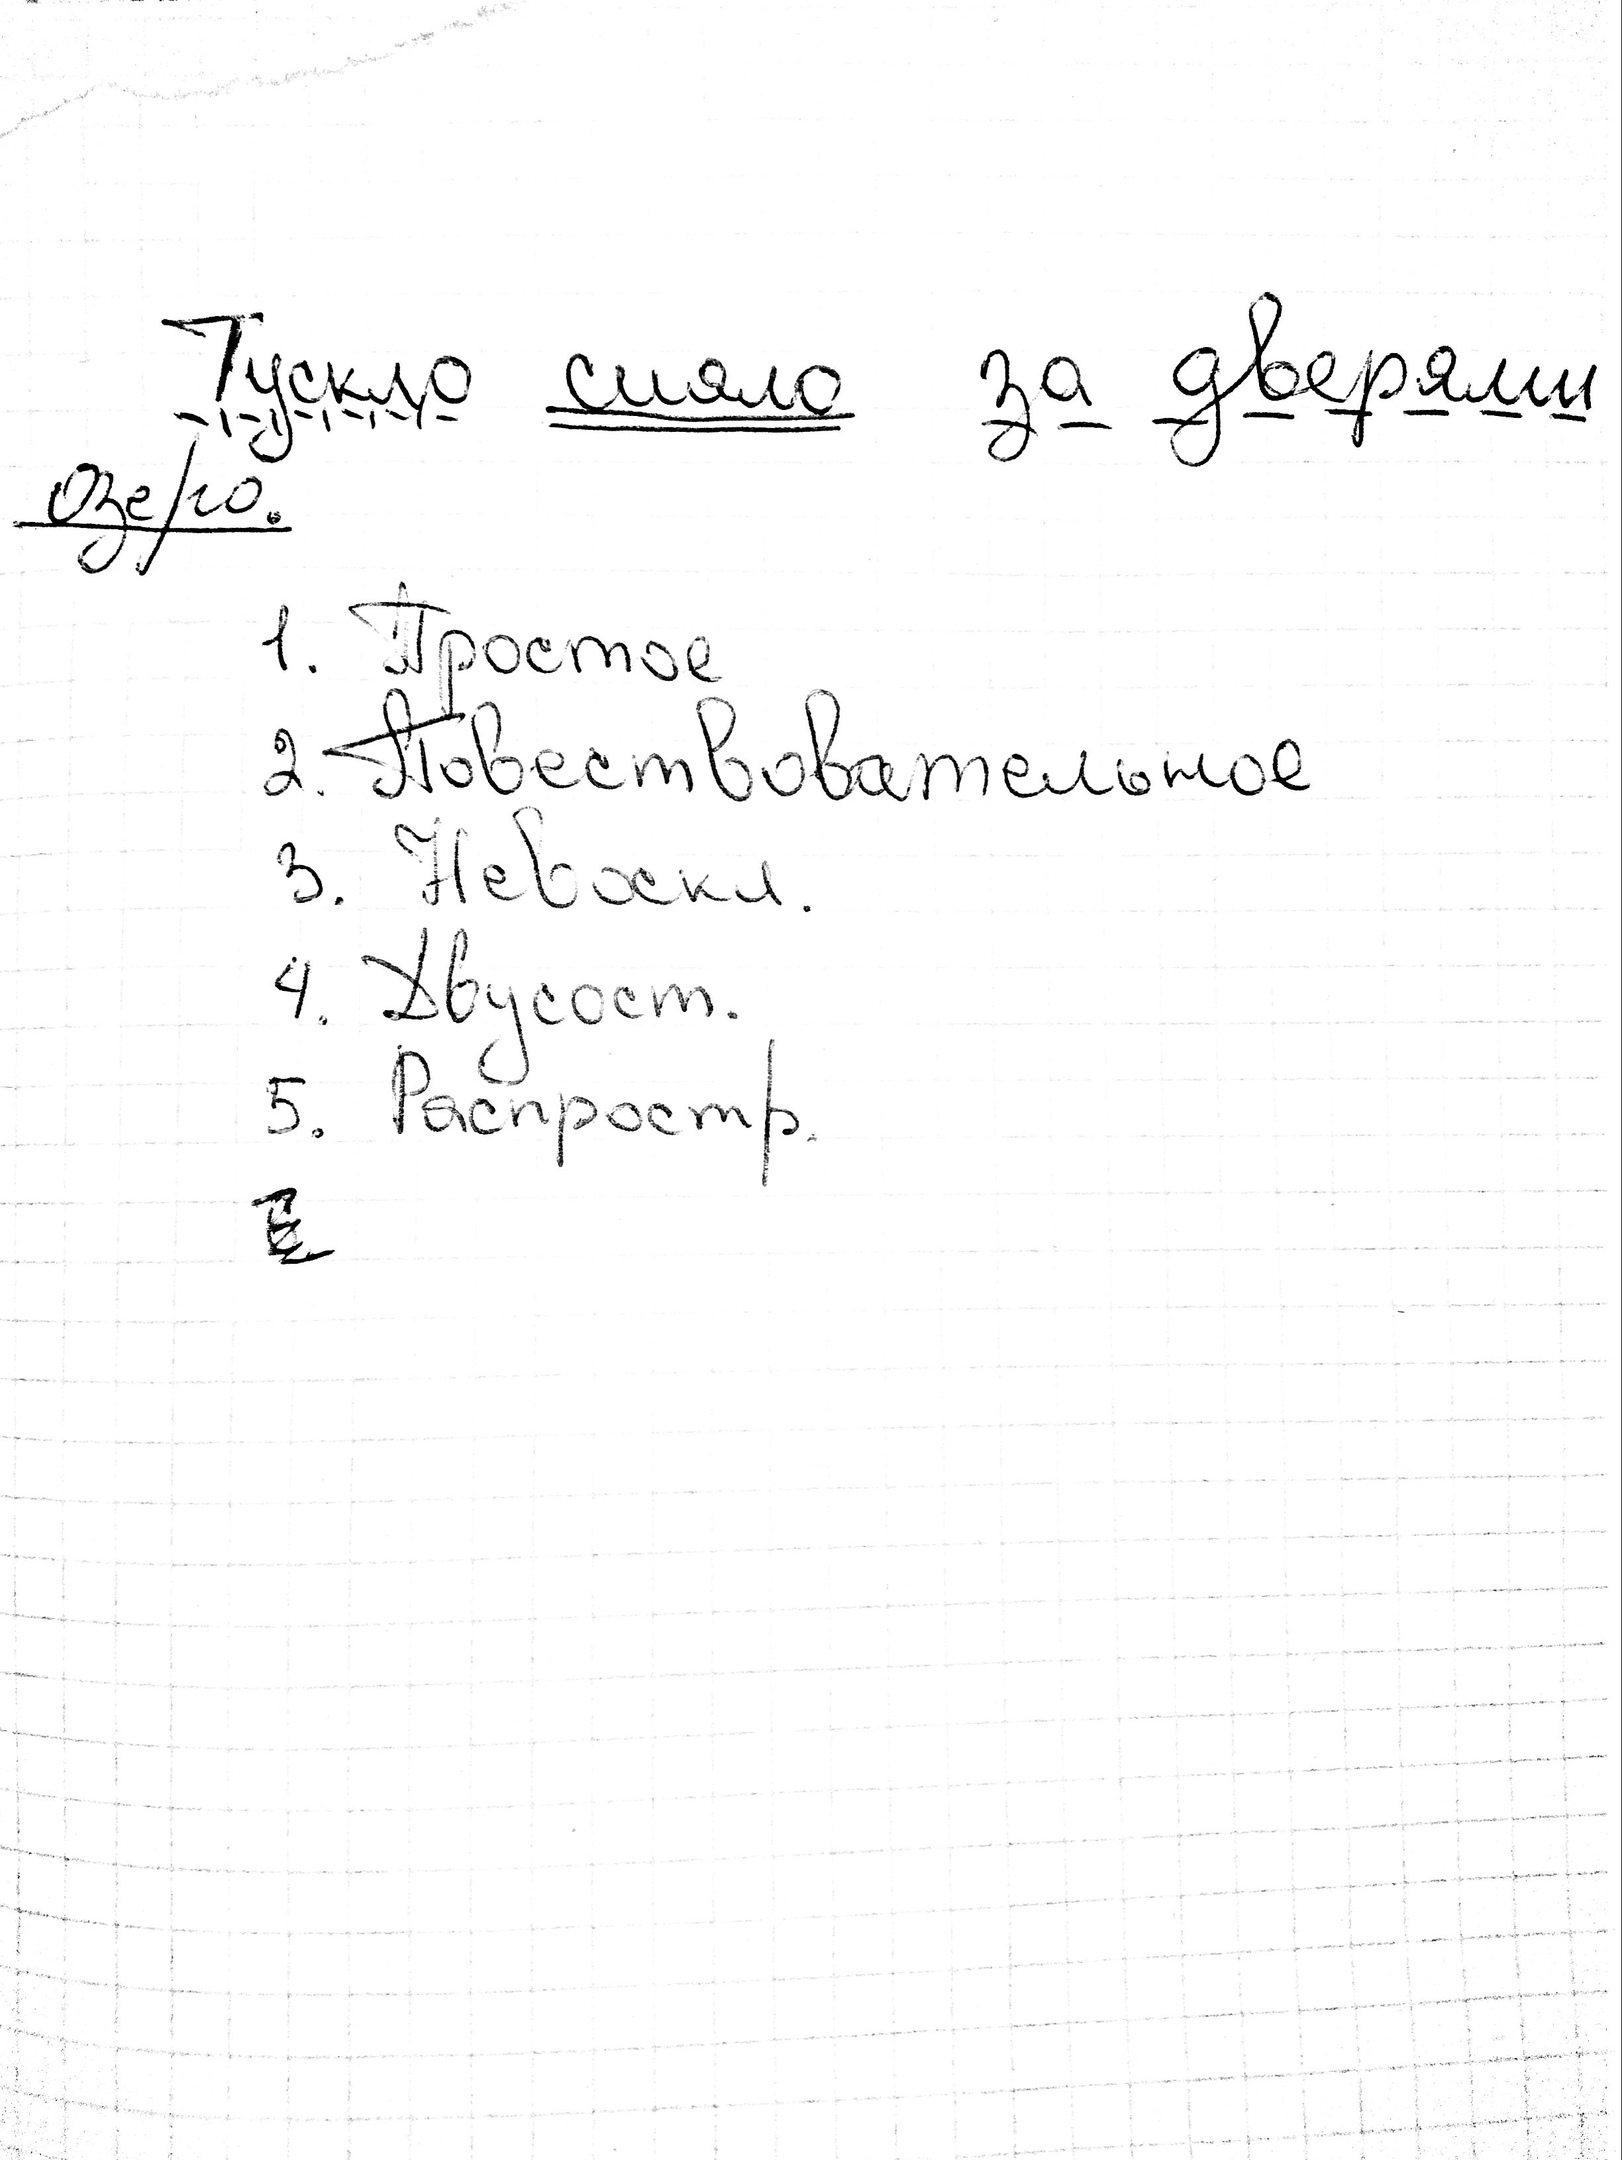 Тускло сияло за дверями
озеро.
1. Простое
2. Повествовательное
3. Невоскл.
4. Двусост.
5. Распростр.